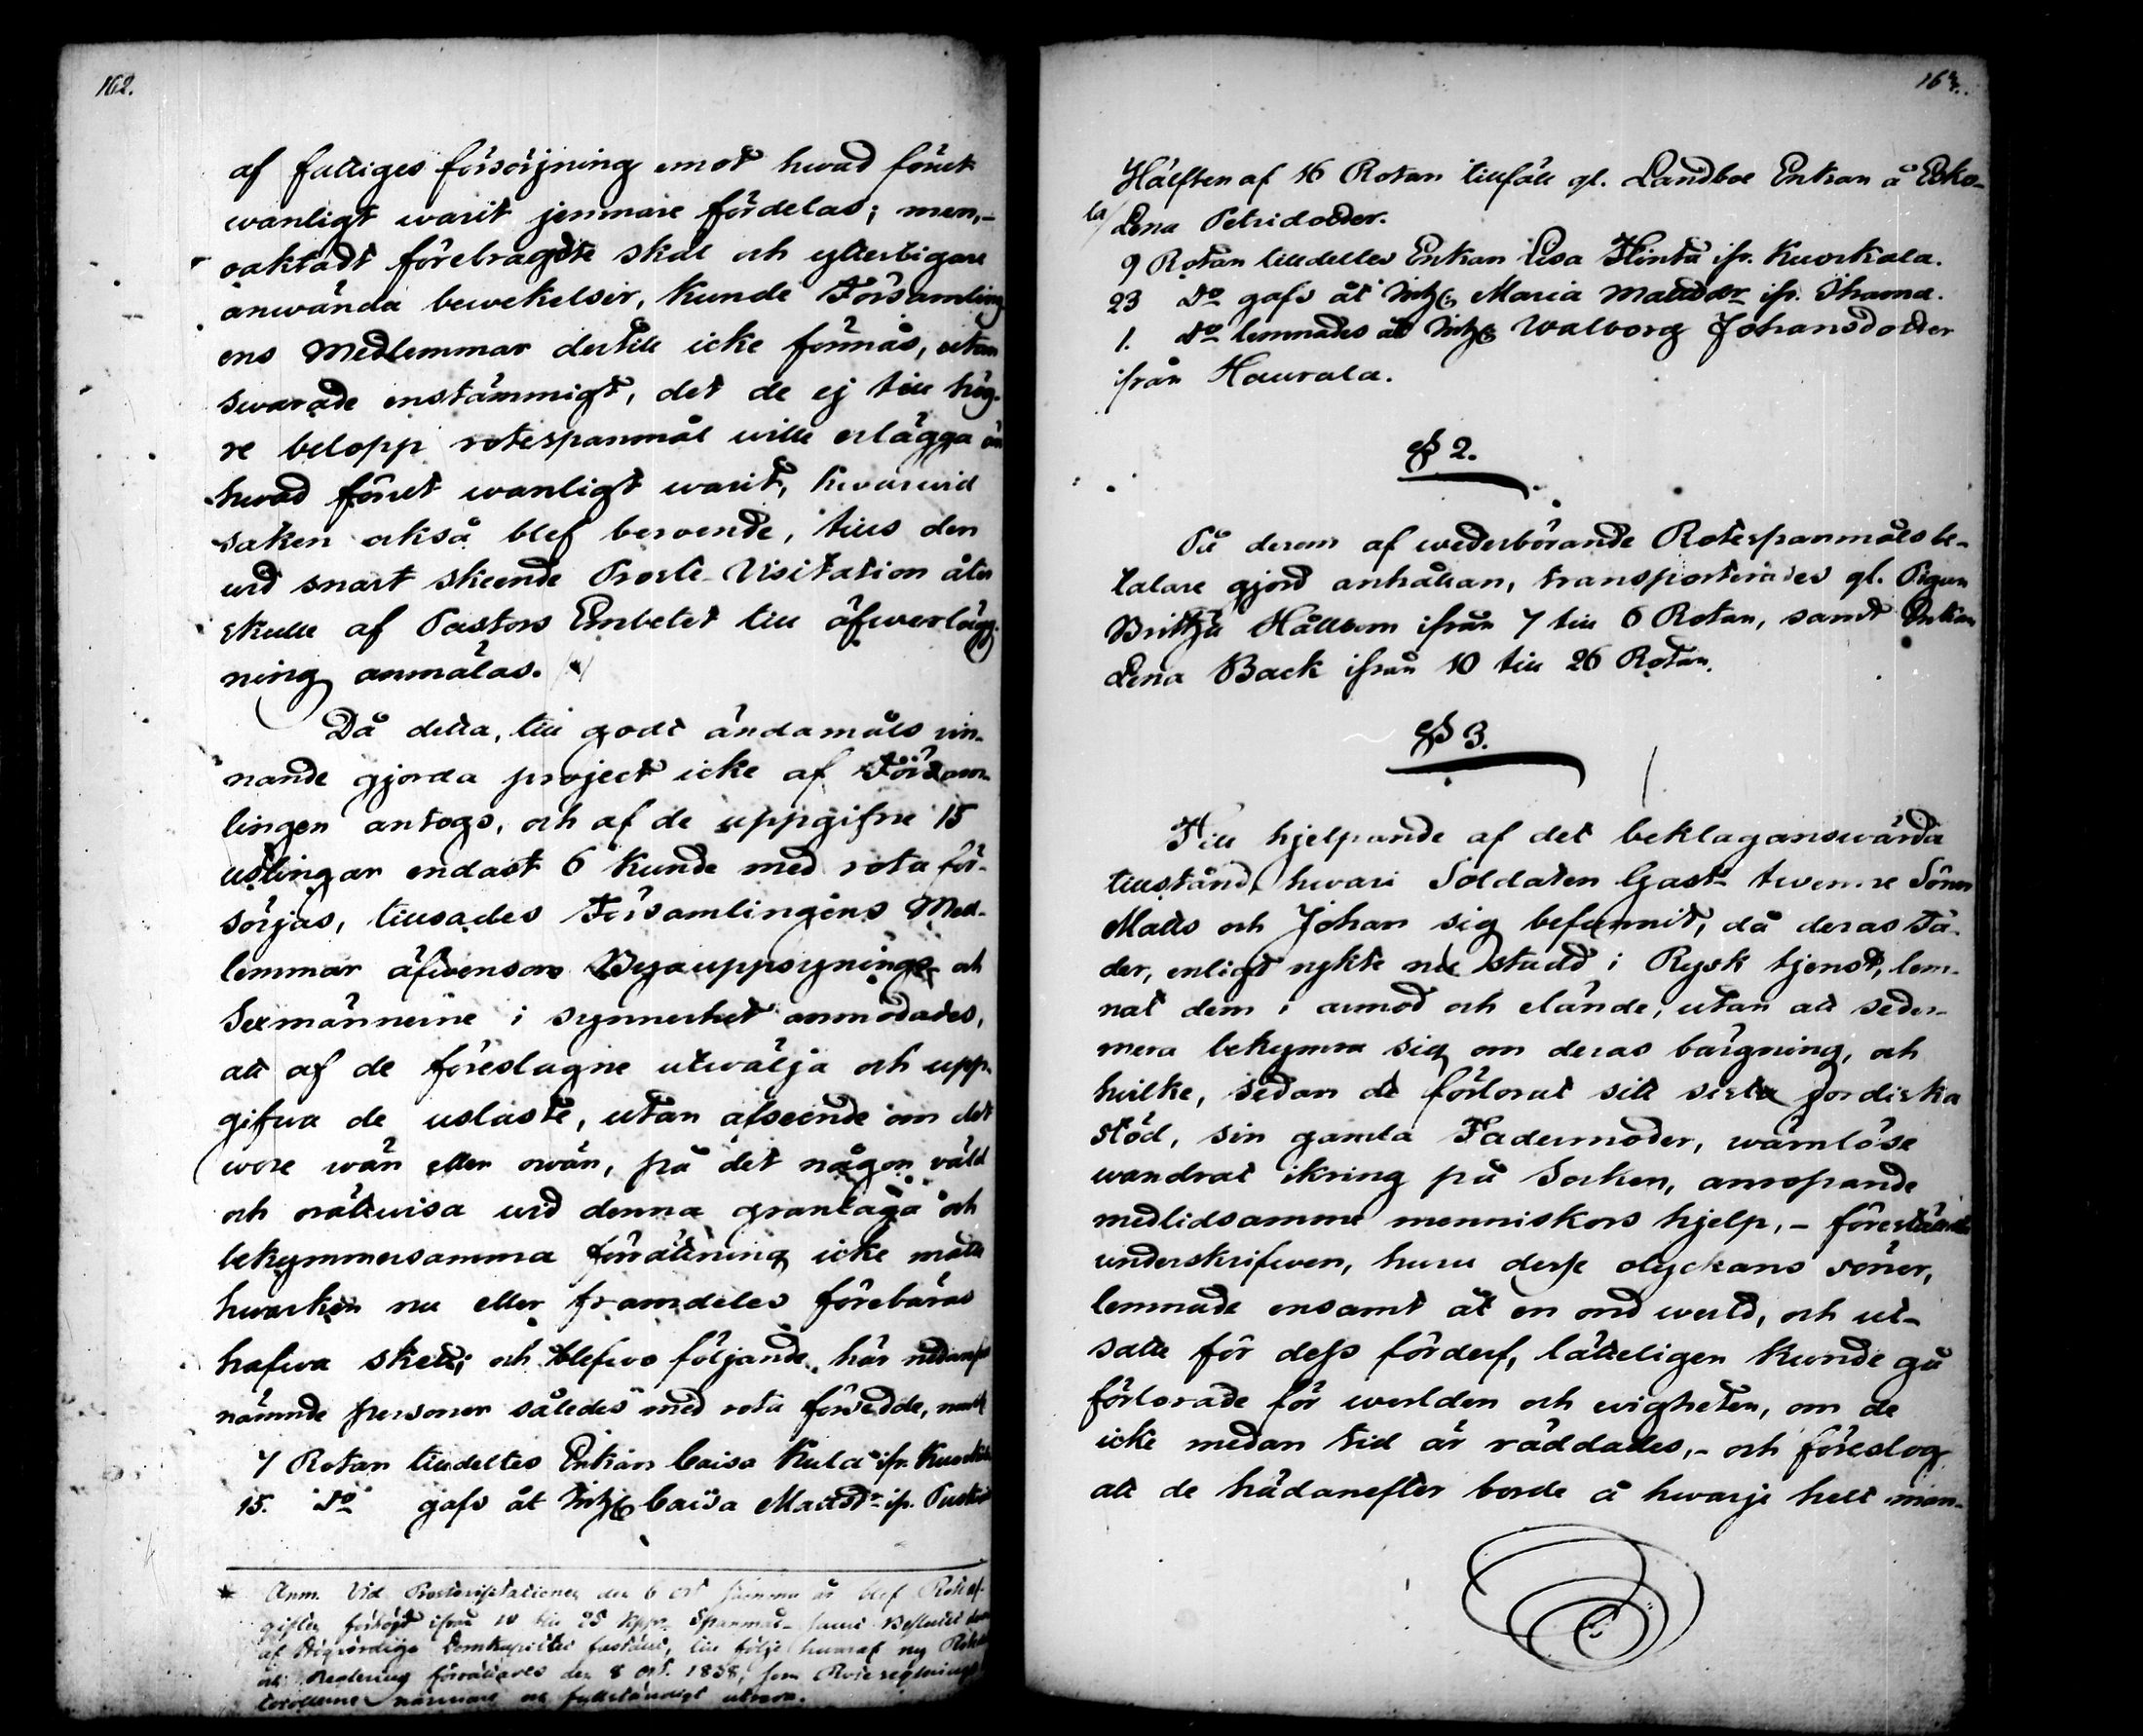 162.
af fattiges försörjning emot hwad förut
wanligt warit jemnare fördelas; men,-
oaktadt förebragdte skäl och ytterligare
använda bewekelser, kunde Församling
ens Medlemmar dertill icke förmås, utan
swarade enstämmigt, det de ej till hög-
re belopp rotespanmål wille erlägga än
hwad förut wanligt warit, hwarwid
saken också blef beroende, tills den
wid snart skeende Prosts-Visitation åter
skulle af Pastors Embetet till öfwerlägg-
ning anmälas.
Då detta, till godt ändamåls win-
nande gjorda project icke af Försam-
lingen antogs, och af de uppgifne 15
uslingar endast 6 kunde med rota för-
sörjas, tillsades Församlingens Med-
lemmar äfwensom Byauppsynings och
Sexmännerne i synnerhet anmodades,
att af de föreslagne utwälja och upp-
gifwa de uslaste, utan afseende om det
wore wän eller owän, på det någon wåld
och orättwisa wid denna grantaga och
bekymmersamma förrättning icke måtte
hwarken nu eller framdeles förebäras
hafwa skett; och blefwo följande, här nedanföre
nämnde personer således med rota försedde,
7 Rotan tilldeltes Enkan Caisa Kula ifr.
15. Do gafs åt Caisa Mattsdr ifr.
* Anm. Vid Prostvisitationen den 6 Oct samma år blef Rotaf-
giften förhögd ifrån 10 till 25 kppr Spanmål samt Beslutet
af Högwördige Domkapitlet fastäldt, till följe hwaraf ny Rote
Reglering förrättades den 8 Oct. 1838, som Roteregleringe
närmare och fullständigt utwisa.
163.
Hälften af 16 Rotan tillföll gl. Landboe Enkan å Esko-
la/ Lena Petridotter.
9 Rotan tilldeltes Enkan Lisa Hinta ifr. Kuorkala.
23 Do gafs åt Maria Mattsdr ifr.
1. Do lemnades åt Walborg Johansdotter
ifrån Haurala.
§ 2.
På derom af wederbörande Rotespanmåls be-
talare gjord anhållan, transporterades gl. Pigan
Brittha Hällbom ifrån 7 till 6 Rotan, samt Enkan
Lena Back ifrån 10 till 26 Rotan.
§ 3.
Till hjelpande af det beklaganswärda
tillstånd, hwari Soldaten Gasts twenne Söner
Matts och Johan sig befunnit, då deras Fa-
der, enligt rykte nu stadd i Rysk tjenst, lem-
nat dem i armod och elände, utan att seder-
mera bekymra sig om deras bärgning, och
hwilke, sedan de förlorat sitt sista jordiska
stöd, sin gamla Fadermoder, wärnlöse
wandrat ikring på Socken, anropande
medlidsamma menniskors hjelp, - föreställde
underskrifwen, huru desse olyckans söner,
lemnade ensamt åt en ond werld, och ut-
satte för dess förderf, lätteligen kunde gå
förlorade för werlden och ewigheten, om de
icke medan tid är räddades, - och föreslog
att de hädanefter borde å hwarje helt man-